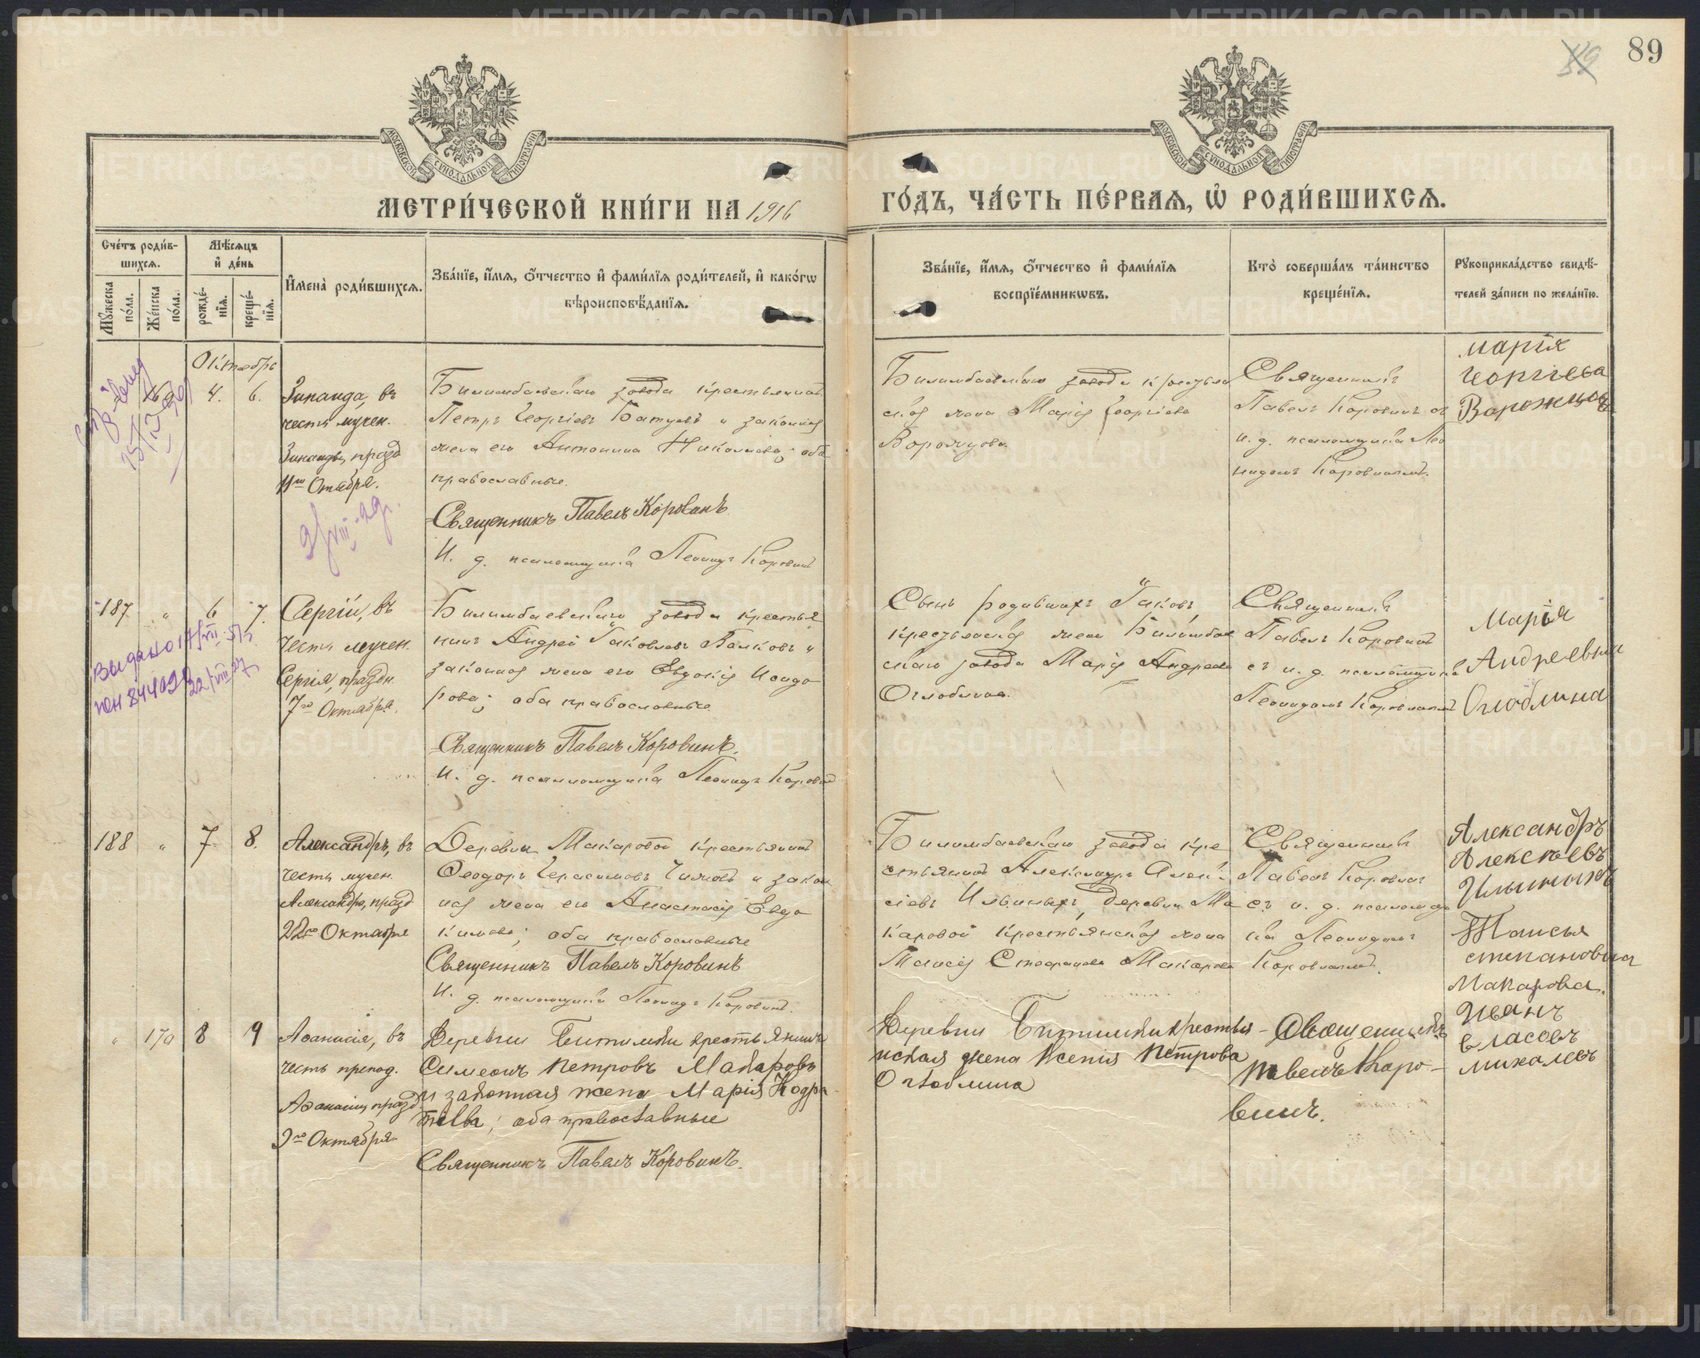 89
МЕТРИ́ЧЕСКОЙ КНИ́ГИ НА 1916
ГО́ДЪ, ЧА́СТЬ ПЕ́РВАЯ, Ѡ҆ РОДИ́ВШИХСЯ.
Сче́тъ роди́в-
шихся.
Мѣ́сяцъ
и҆ де́нь
Му́жеска
по́ла.
Же́нска
по́ла.
рожде́-
нїя.
креще́-
нїя.
И҆мена̀ роди́вшихся.
Зва́нїе, и҆́мя, ѻ҆́тчество и҆ фами́лїя роди́телей, и҆ како́гѡ
вѣроисповѣ́данїя.
Зва́нїе, и҆́мя, ѻ҆́тчество и҆ фами́лїя
воспрїе́мникѡвъ.
Кто̀ соверша́лъ та́инство
креще́нїя.
Рꙋкоприкла́дство свидѣ́-
телей за́писи по жела́нїю.
Октябрь
169 4. 6.
Зинаида, въ
честь мучен.
Зинаиды, празд
11го Октября.
Билимбаевскаго завода крестьянинъ
Петръ Георгіевъ и законная
жена его Антонина Николаева; оба
православные.
Священникъ Павелъ Коровинъ
И. д. псаломщика Леонидъ Коровинъ
Билимбаевскаго завода крестьян
ская жена Марія Георгіева
Ворожцова
Священникъ
Павелъ Коровинъ съ
и. д. псаломщика Лео
нидомъ Коровинымъ.
Марія
Георгіева
Ворожцова
187 " 6 7.
Сергій, въ
честь мучен.
Сергія, праздн.
7го Октября.
Выдано
Билимбаевскаго завода крестья
нинъ Андрей Іаковлевъ и
законная жена его Евдокія Исидо
рова; оба православные
Священникъ Павелъ Коровинъ.
И. д. псаломщика Леонидъ Коровинъ
Сынъ родившихъ Іаковъ,
крестьянская жена Билимбаев
скаго завода Марія Андреева
Оглоблина.
Священникъ
Павелъ Коровинъ
съ и. д. псаломщика
Леонидомъ Коровинымъ
Марія
Андреевна
Оглоблина
188 " 7 8.
Александръ, въ
честь мучен.
Александра, празд
22го Октября
Деревни Макаровой крестьянинъ
Ѳеодоръ Герасимовъ и закон
ная жена его Анастасія Евдо
кимова; оба православные
Священникъ Павелъ Коровинъ
И. д. псаломщика Леонидъ Коровинъ.
Билимбаевскаго завода кре
стьянинъ Александръ Алек
сіевъ Ильиныхъ, деревни Ма
каровой крестьянская жена
Таисія Стефанова Макарова
Священникъ
Павелъ Коровинъ
съ и. д. псаломщи
ка Леонидомъ
Коровинымъ.
Александръ
Алексѣевъ
Ильиныхъ
Таисья
степановна
Макарова.
" 170 8 9
Аѳанасія, въ
честь препод.
Аѳанасіи, празд
9го Октября
Деревни Битимки крестьянинъ
Симеонъ Петровъ Макаровъ
и законная жена Марія Кодра-
тьева; оба православные
Священникъ Павелъ Коровинъ.
Деревни Битимки крестья-
нская жена Ксенія Петрова
Оглоблина
Священникъ
Павелъ Коро-
винъ.
Иванъ
власовъ
михалев